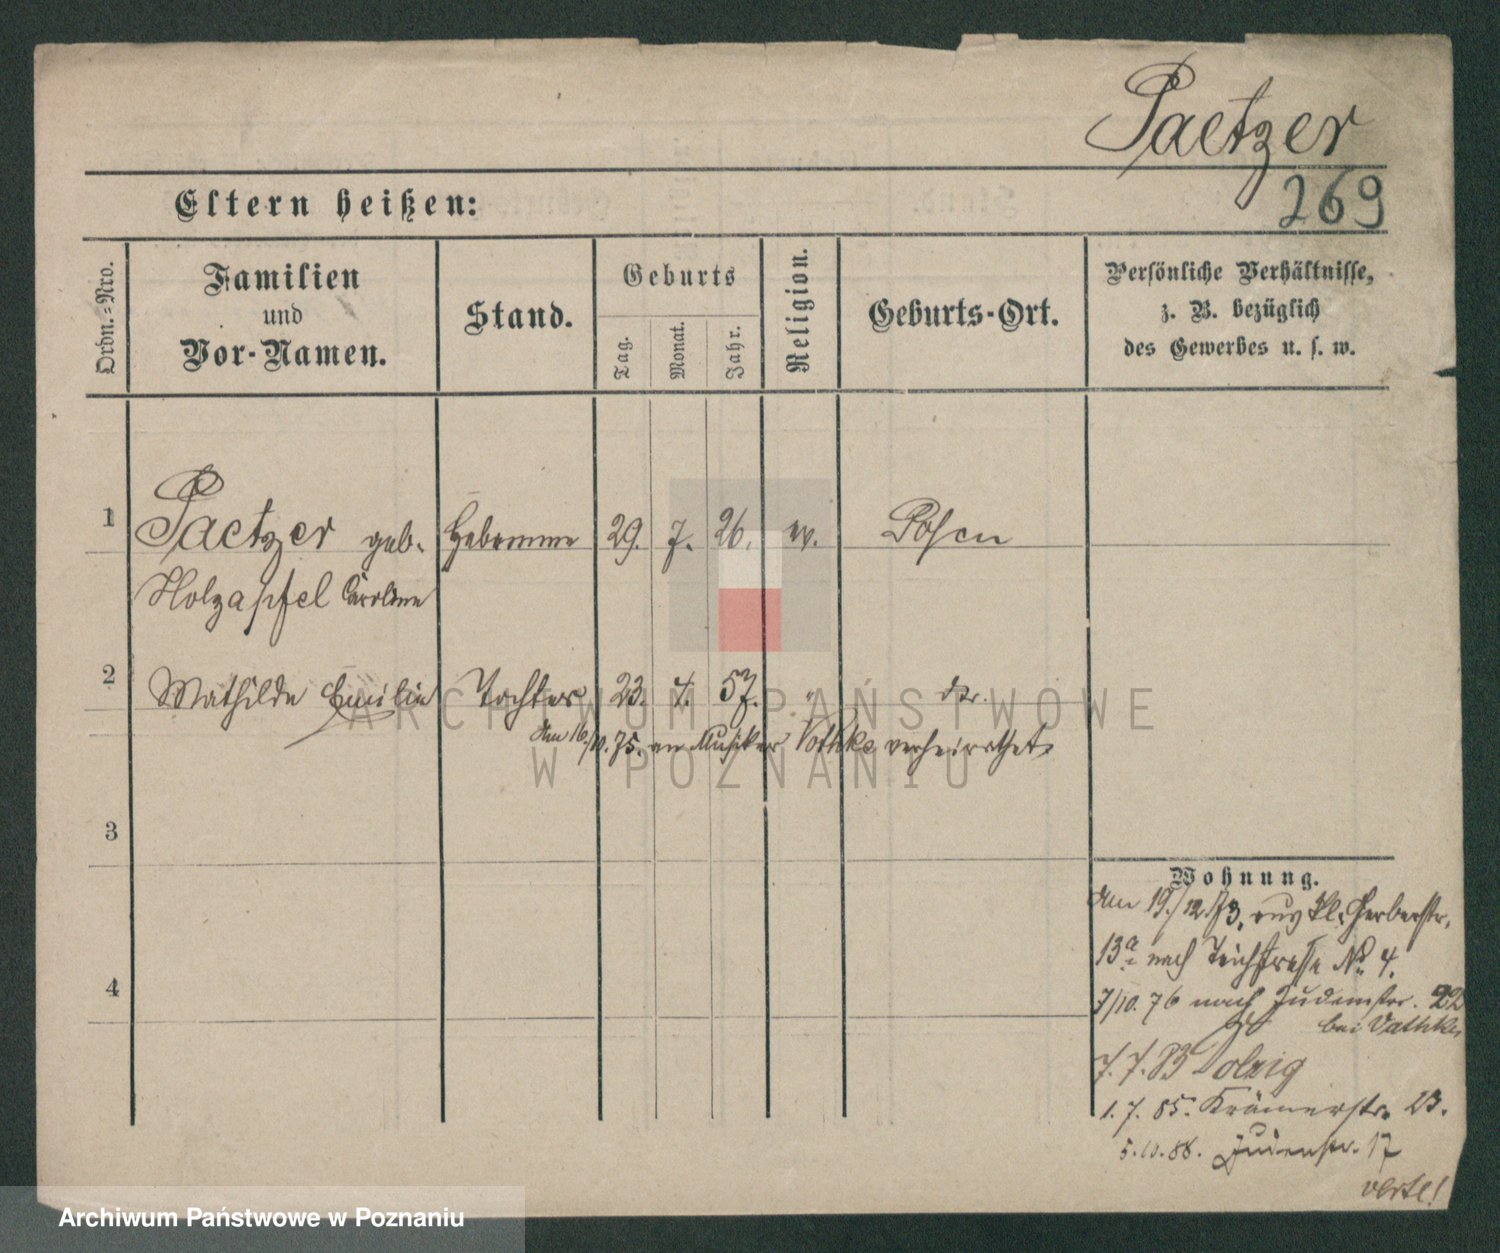 Paetzer
269
Eltern heißen:
Ordn.-Nro.
Familien
und
Vor-Namen.
Stand.
Geburts
Tag.
Monat.
Jahr.
Religion.
Geburts-Ort.
Persönliche Verhältnisse,
z. B. bezüglich
des Gewerbes u. s. w.
1
Paetzer geb. Hebamme 29. 7. 26. ev. Posen
Holzapfel Caroline
2
Mathilde Emilie Tochter 23. 4. 57. " do.
Am 16/10. 75. an Musiker Vothke verheirathet.
3
4
Wohnung.
Am 19./12. 73. aus kl. Gerberstr.
13a nach Teichstrasse No 4.
7/10. 76 nach Judenstr. 22
bei Vathke
7. 7. 83 Dolzig
1. 7. 85. Krämerstr. 23.
5. 10. 88. Judenstr. 17
verte!
ARCHIWUM PAŃSTWOWE
W POZNANIU
Archiwum Państwowe w Poznaniu